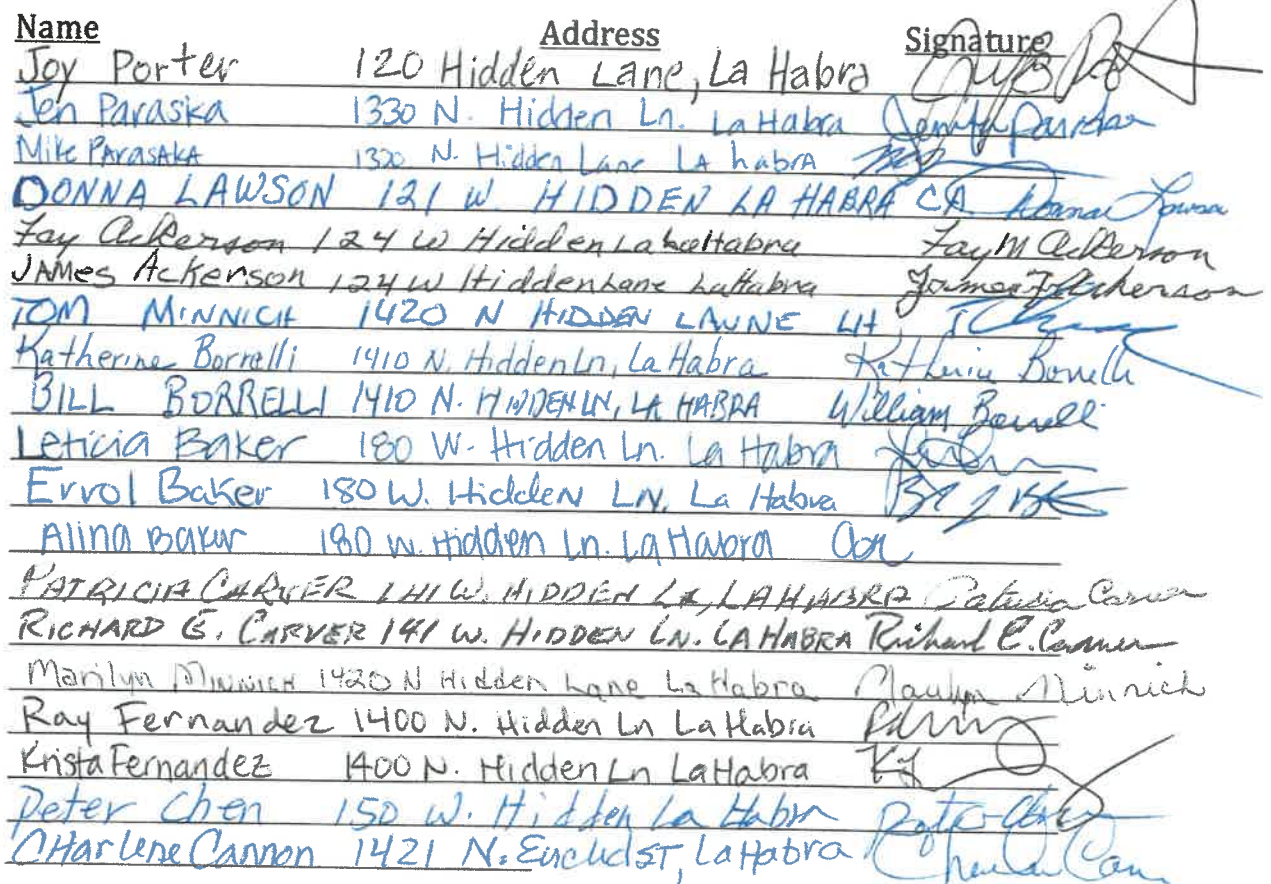 Name Address Signature
Joy Porter 120 Hidden Lane, La Habra
Jen Paraska 1330 N. Hidden Ln. La Habra Jennifer Paraska
Mike Parasaka 1330 N. Hidden Lane LA habrA
DONNA LAWSON 121 W HIDDEN LA HABRA CA Donna Lawson
Fay Ackerson 124 W Hidden La Habra Fay M Ackerson
JAMes Ackerson 124 W Hidden Lane LaHabra James Ackerson
TOM MINNICH 1420 N HIDDEN LAUNE LH
Katherine Borrelli 1410 N. Hidden Ln, La Habra Katherine Borrelli
BILL BORRELLI 1410 N. HIDDEN LN, LA HABRA William Borrelli
Leticia Baker 180 W. Hidden Ln. La Habra
Errol Baker 180 W. Hidden LN, La Habra
Alina Baker 180 W. Hidden Ln. La Habra
PATRICIA CARVER 141 W. HIDDEN LN, LA HABRA Patricia Carver
RICHARD E. CARVER 141 W. HIDDEN LN. LA HABRA Richard E. Carver
Marilyn Minnich 1420 N Hidden Lane La Habra Marilyn Minnich
Ray Fernandez 1400 N. Hidden Ln La Habra
Krista Fernandez 1400 N. Hidden Ln La Habra KF
Peter Chen 150 W. Hidden La Habra Peter Chen
CHarlene Cannon 1421 N. Euclid ST, La Habra Charlene Cann